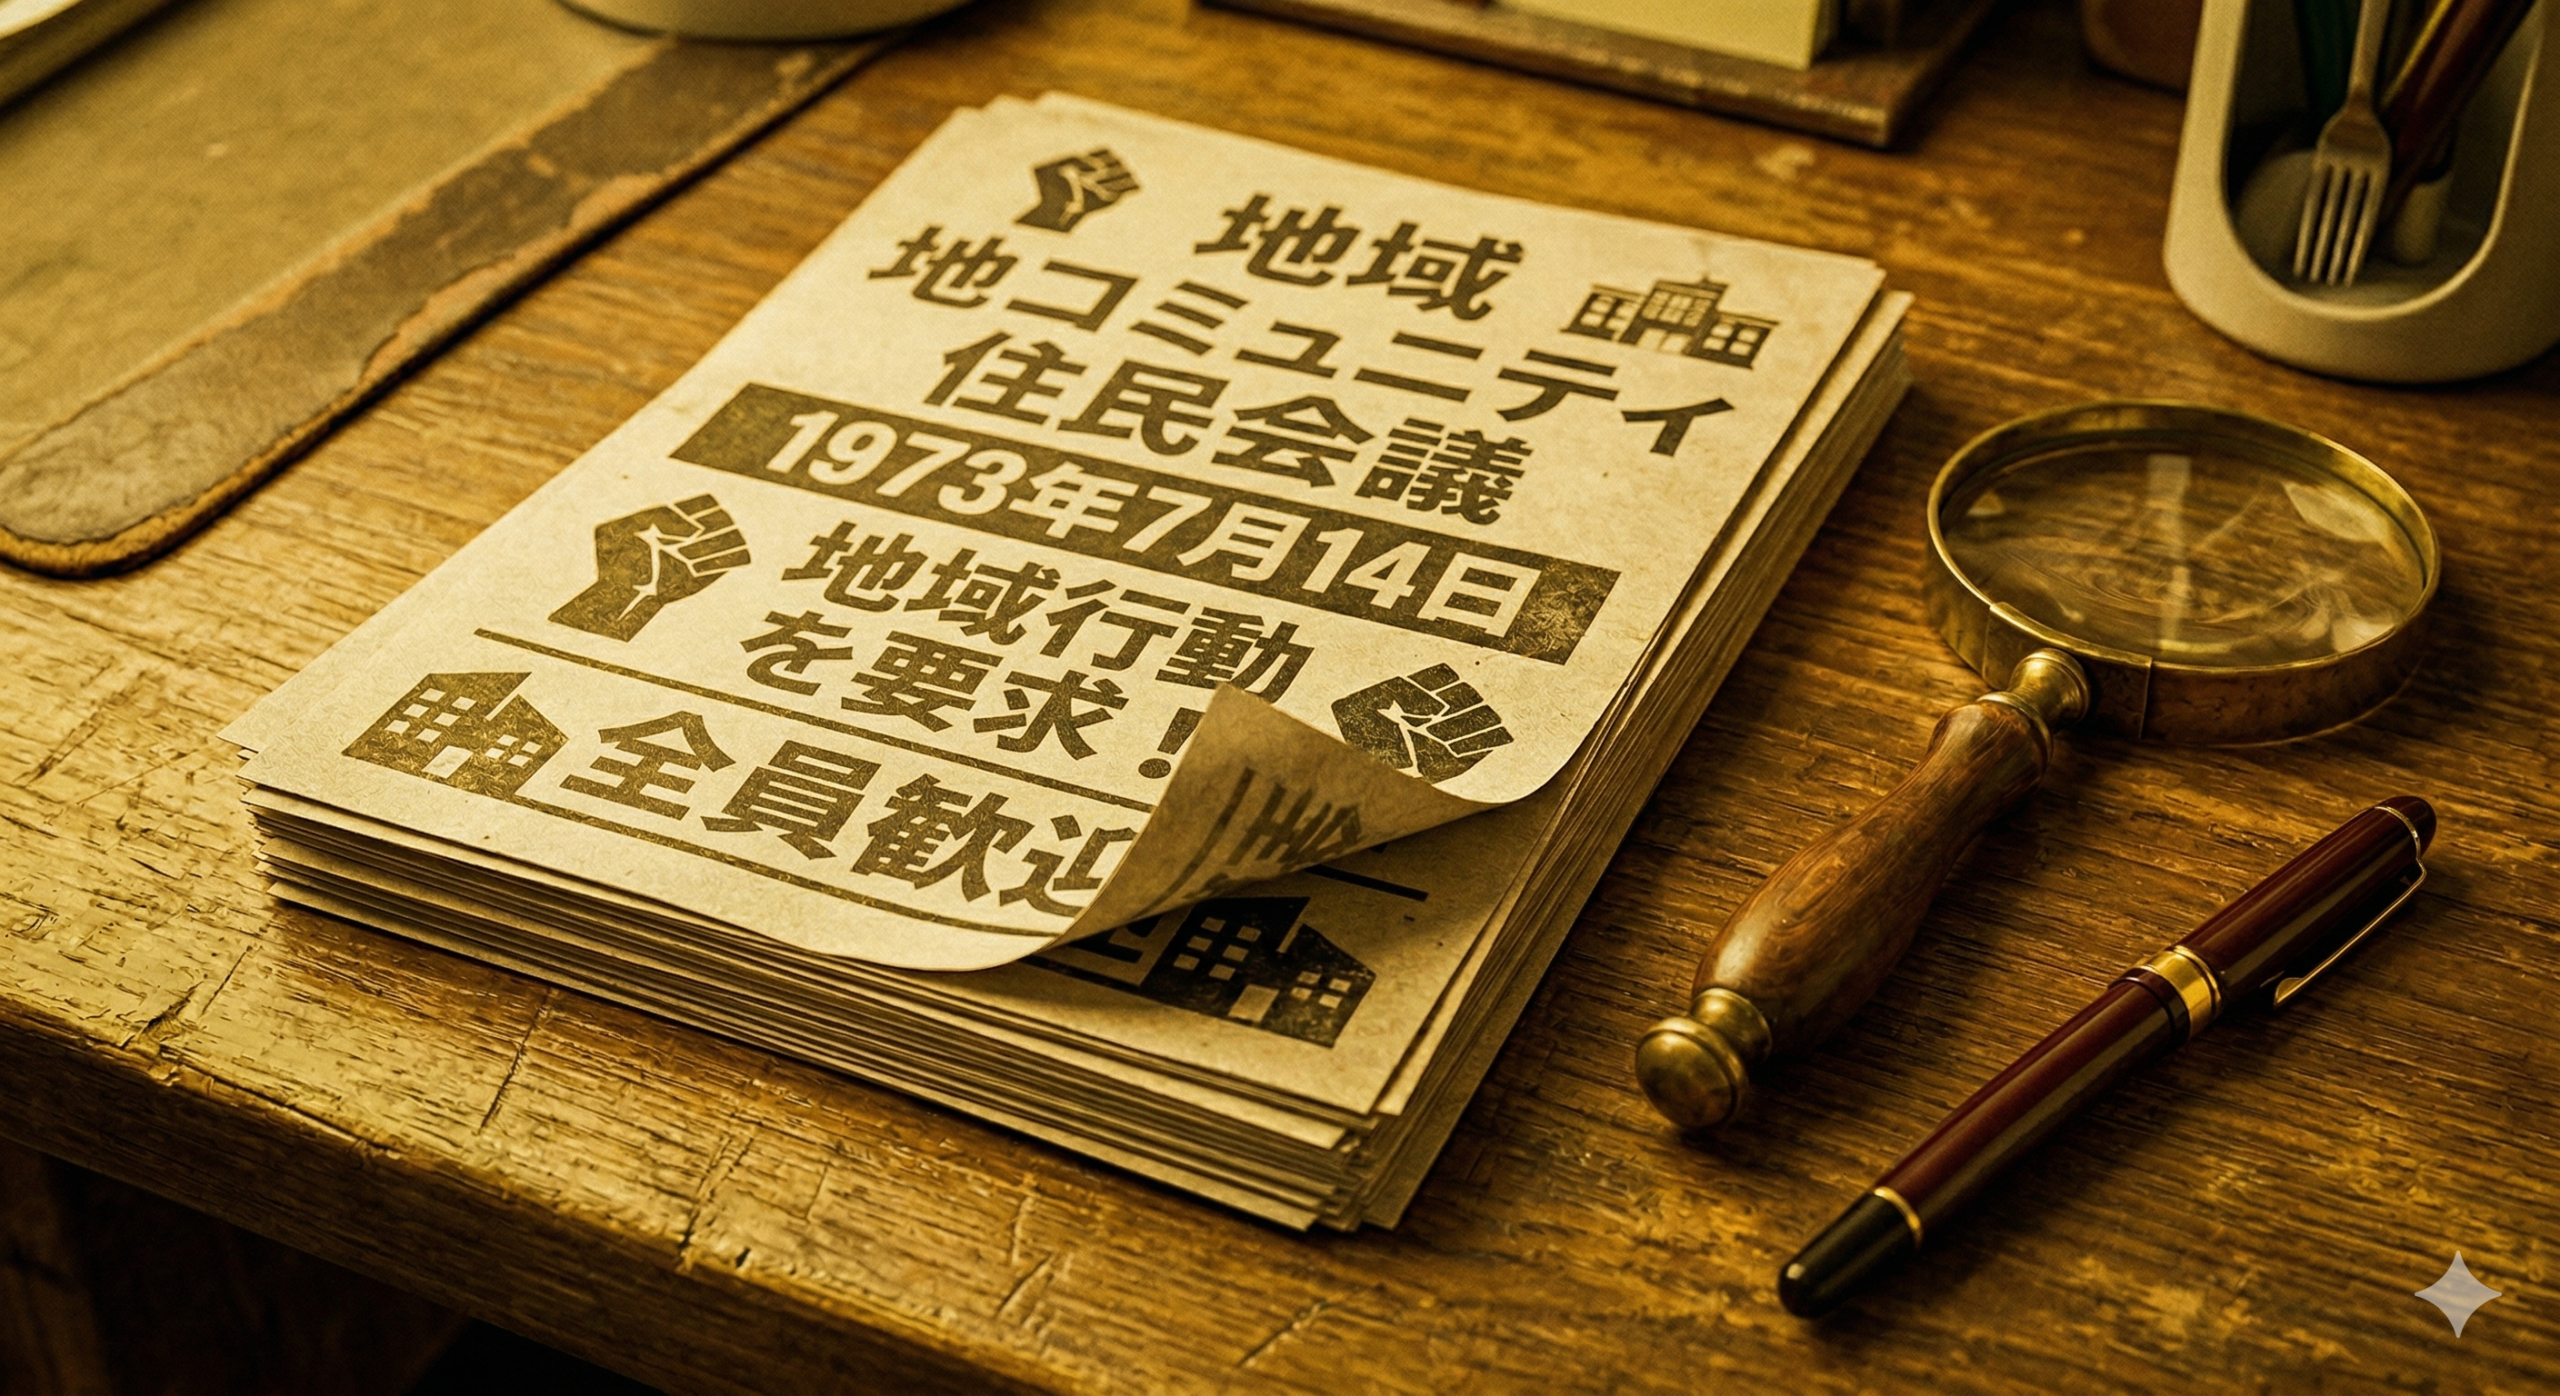 地域
地コミュニティ
住民会議
1973年7月14日
地域行動
を要求！
全員歓迎